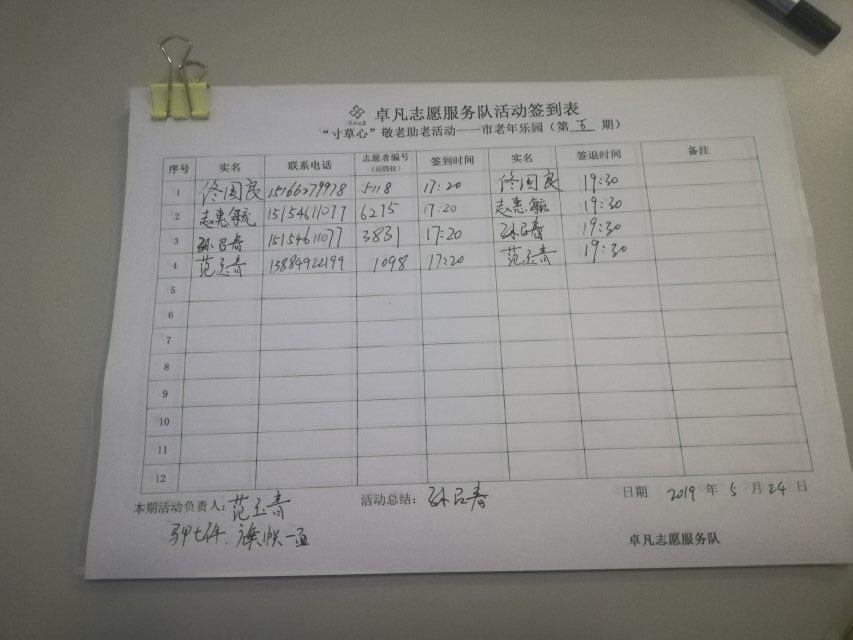 卓凡志愿服务队活动签到表
“寸草心”敬老助老活动——市老年乐园（第 五 期）
序号 实名 联系电话 志愿者编号 签到时间 实名 签退时间 备注
1 佟国良 15166279978 5118 17:20 佟国良 19:30
2 志惠毓 15154611077 6275 17:20 志惠毓 19:30
3 孙召春 15154611077 3831 17:20 孙召春 19:30
4 范玉青 15884922199 1098 17:20 范玉青 19:30
5
6
7
8
9
10
11
12
本期活动负责人：范玉青 活动总结：孙召春 日期 2019 年 5 月 24 日
马甲七件、旗帜一面
卓凡志愿服务队